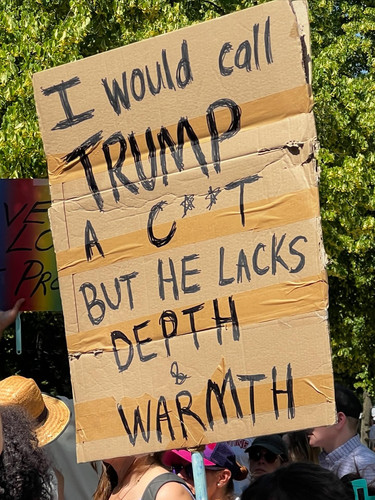 I would call
TRUMP
A C**T
BUT HE LACKS
DEPTH
&
WARMTH